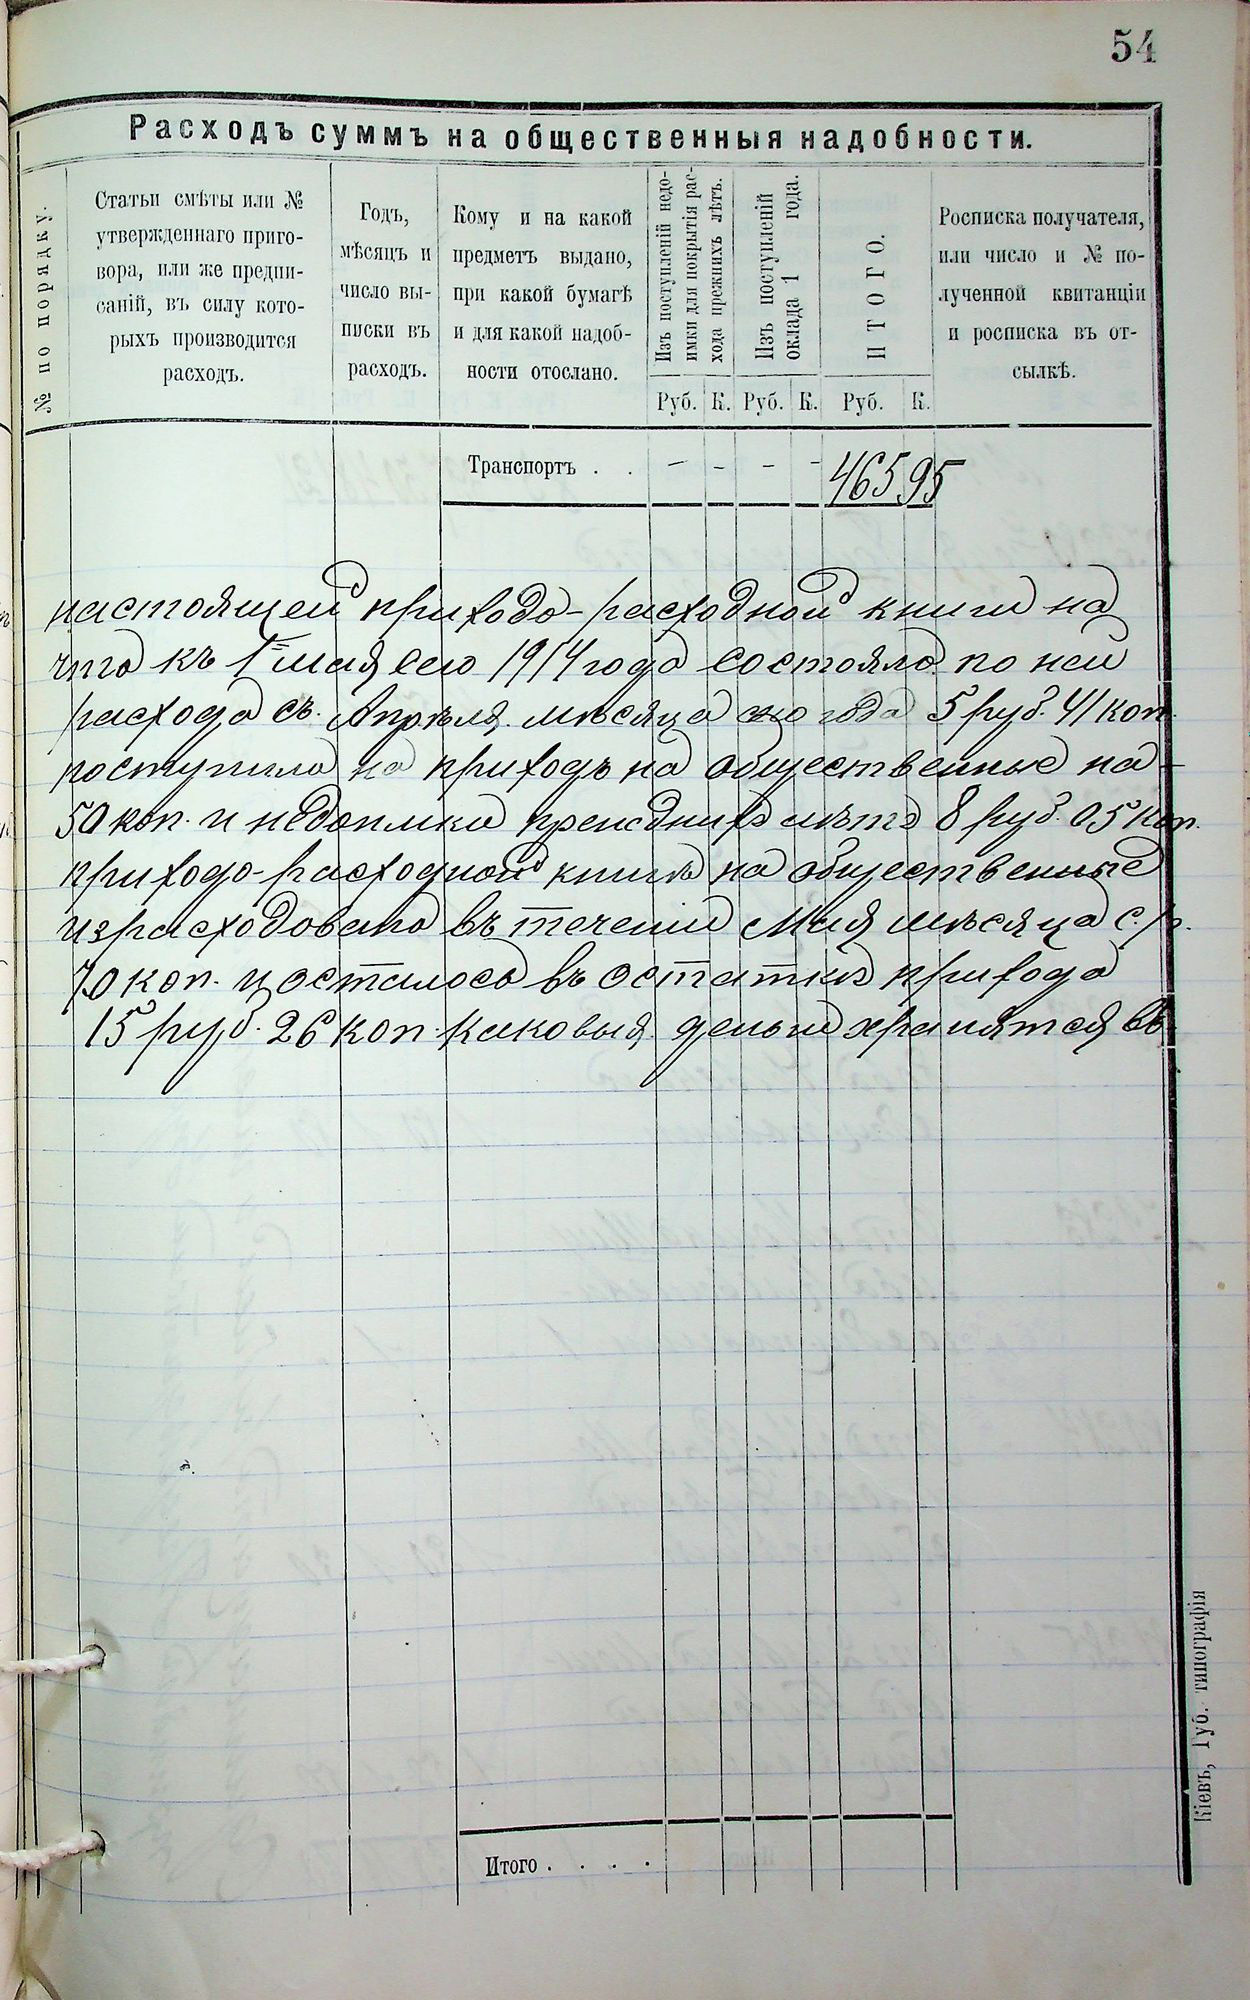 54
Расходъ суммъ на общественныя надобности.
№ по порядку.
Статьи смѣты или №
утвержденнаго приго-
вора, или же предпи-
саній, въ силу кото-
рыхъ производится
расходъ.
Годъ,
мѣсяцъ и
число вы-
писки въ
расходъ.
Кому и на какой
предметъ выдано,
при какой бумагѣ
и для какой надоб-
ности отослано.
Изъ поступленій недо-
имки для покрытія рас-
хода прежнихъ лѣтъ.
Изъ поступленій
оклада 1 года.
ИТОГО.
Росписка получателя,
или число и № по-
лученной квитанціи
и росписка въ от-
сылкѣ.
Руб. К. Руб. К. Руб. К.
Транспортъ . . — — — — 465 95
настоящей приходо-расходной книги на
что къ 1 мая сего 1914 года состояло по ней
расхода съ Апрѣля мѣсяца года 5 руб. 41 коп.
поступило на приходъ на общественные на-
50 коп. и недоимки прежднихъ лѣтъ 8 руб. 05 коп.
приходо-расходной книгѣ на общественные
израсходовано въ теченіи Мая мѣсяца с. г.
70 коп. и осталось въ остаткѣ прихода
15 руб. 26 коп. каковыя деньги хранятся въ
Итого . . . .
Кіевъ, Губ. типографія